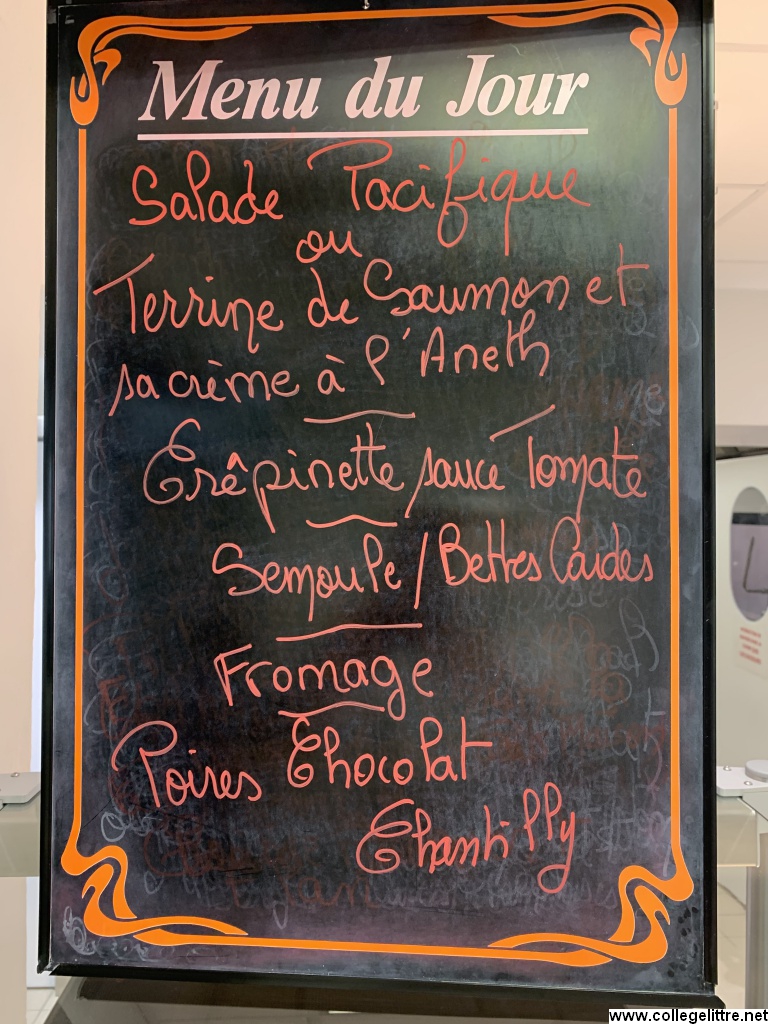 Menu du Jour
Salade Pacifique
ou
Terrine de Saumon et
sa crème à l'Aneth
Crêpinette sauce Tomate
Semoule / Bettes Cardes
Fromage
Poires Chocolat
Chantilly
www.collegelittre.net